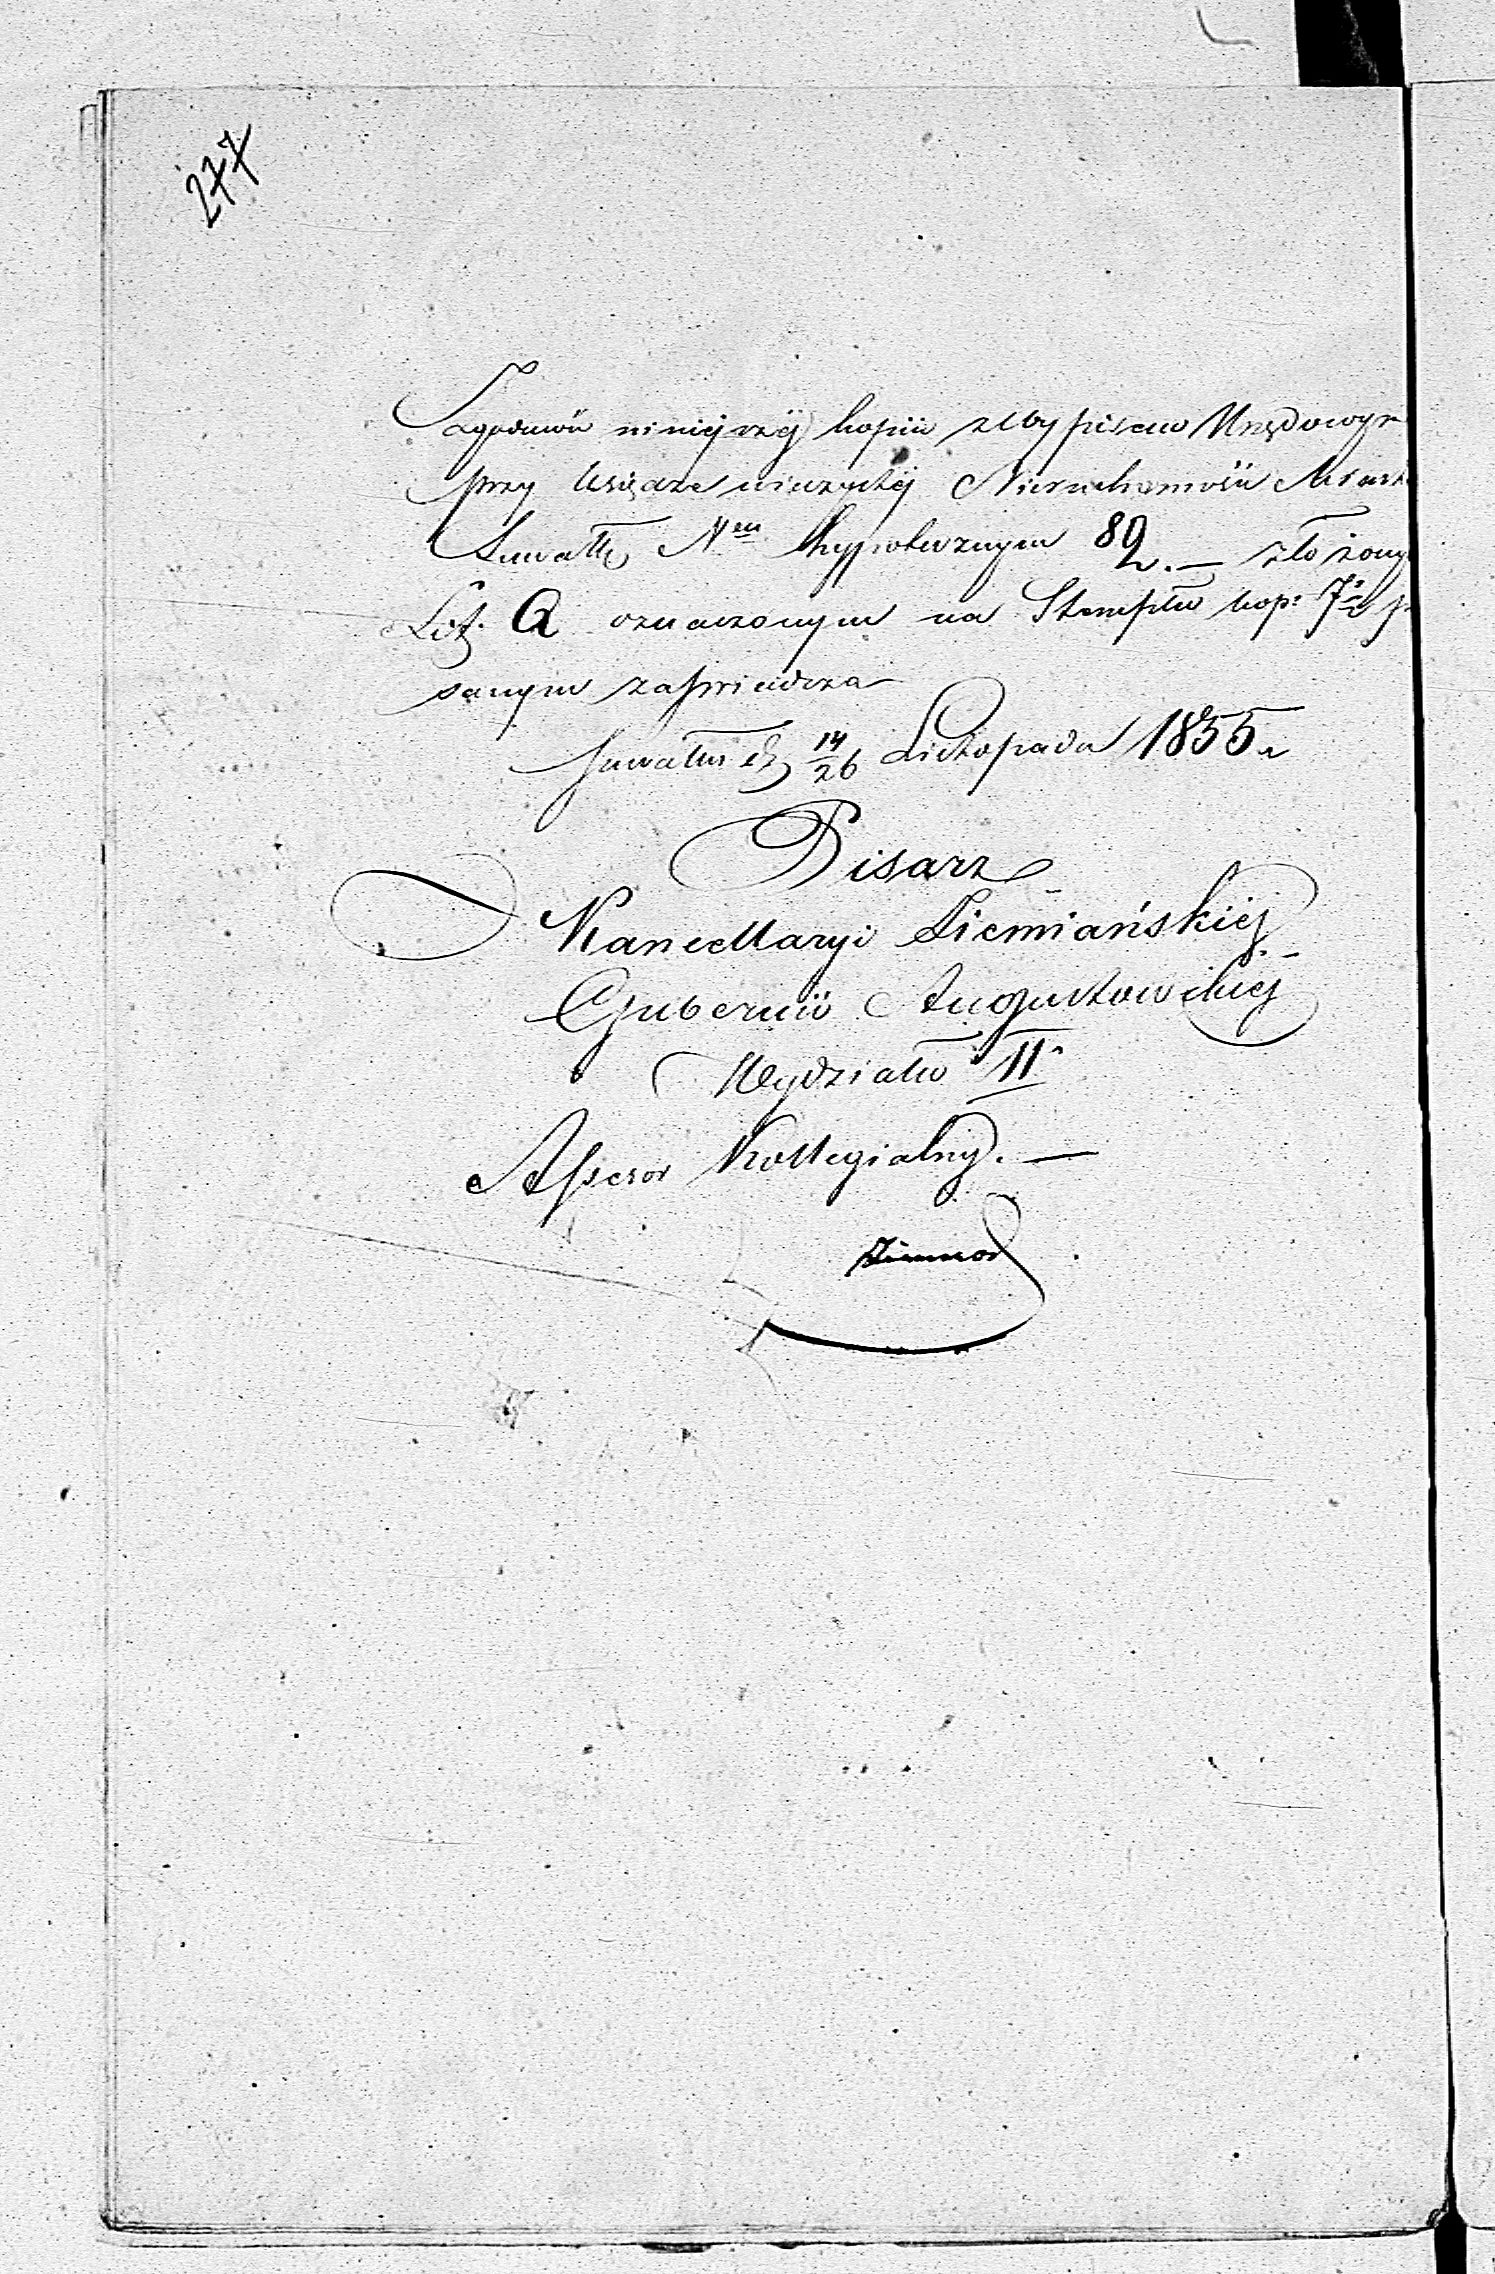 277
Zgodność niniejszéj kopii z Wypisem Urzędowym
przy księdze wieczystéj Nieruchomości Miasta
Suwałk Nem hypotecznym 82. — złożonym
Lit. A oznaczonym na Stemplu kop: 7½
sanym zaświadcza
Suwałki d. 14/26 Listopada 1855 r
Pisarz
Kancellaryi Ziemiańskiéj
Gubernii Augustowskiéj
Wydziału II
Assesor Kollegialny. —